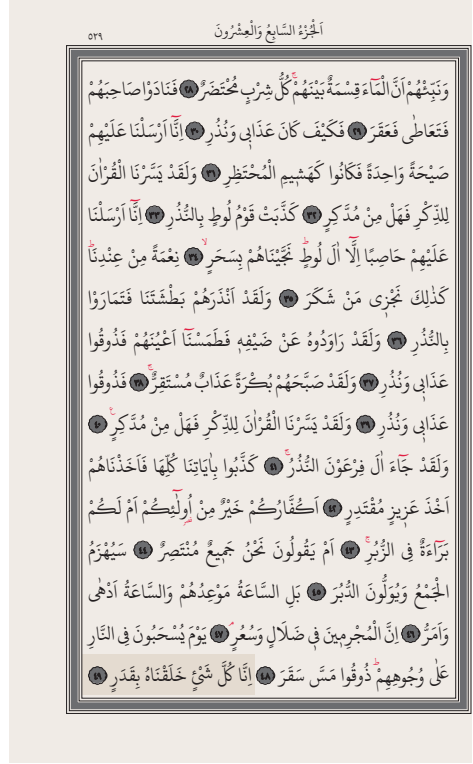 اَلْجُزْءُ السَّابِعُ وَالْعِشْرُونَ
٥٢٩
وَنَبِّئْهُمْ اَنَّ الْمَٓاءَ قِسْمَةٌ بَيْنَهُمْۚ كُلُّ شِرْبٍ مُحْتَضَرٌ ﴿٢٨﴾ فَنَادَوْا صَاحِبَهُمْ
فَتَعَاطٰى فَعَقَرَ ﴿٢٩﴾ فَكَيْفَ كَانَ عَذَاب۪ي وَنُذُرِ ﴿٣٠﴾ اِنَّٓا اَرْسَلْنَا عَلَيْهِمْ
صَيْحَةً وَاحِدَةً فَكَانُوا كَهَش۪يمِ الْمُحْتَظِرِ ﴿٣١﴾ وَلَقَدْ يَسَّرْنَا الْقُرْاٰنَ
لِلذِّكْرِ فَهَلْ مِنْ مُدَّكِرٍ ﴿٣٢﴾ كَذَّبَتْ قَوْمُ لُوطٍ بِالنُّذُرِ ﴿٣٣﴾ اِنَّٓا اَرْسَلْنَا
عَلَيْهِمْ حَاصِبًا اِلَّٓا اٰلَ لُوطٍۜ نَجَّيْنَاهُمْ بِسَحَرٍۙ ﴿٣٤﴾ نِعْمَةً مِنْ عِنْدِنَاۜ
كَذٰلِكَ نَجْز۪ي مَنْ شَكَرَ ﴿٣٥﴾ وَلَقَدْ اَنْذَرَهُمْ بَطْشَتَنَا فَتَمَارَوْا
بِالنُّذُرِ ﴿٣٦﴾ وَلَقَدْ رَاوَدُوهُ عَنْ ضَيْفِه۪ فَطَمَسْنَٓا اَعْيُنَهُمْ فَذُوقُوا
عَذَاب۪ي وَنُذُرِ ﴿٣٧﴾ وَلَقَدْ صَبَّحَهُمْ بُكْرَةً عَذَابٌ مُسْتَقِرٌّۚ ﴿٣٨﴾ فَذُوقُوا
عَذَاب۪ي وَنُذُرِ ﴿٣٩﴾ وَلَقَدْ يَسَّرْنَا الْقُرْاٰنَ لِلذِّكْرِ فَهَلْ مِنْ مُدَّكِرٍ۟ ﴿٤٠﴾
وَلَقَدْ جَٓاءَ اٰلَ فِرْعَوْنَ النُّذُرُۚ ﴿٤١﴾ كَذَّبُوا بِاٰيَاتِنَا كُلِّهَا فَاَخَذْنَاهُمْ
اَخْذَ عَز۪يزٍ مُقْتَدِرٍ ﴿٤٢﴾ اَكُفَّارُكُمْ خَيْرٌ مِنْ اُو۬لٰٓئِكُمْ اَمْ لَكُمْ
بَرَٓاءَةٌ فِي الزُّبُرِۚ ﴿٤٣﴾ اَمْ يَقُولُونَ نَحْنُ جَم۪يعٌ مُنْتَصِرٌ ﴿٤٤﴾ سَيُهْزَمُ
الْجَمْعُ وَيُوَلُّونَ الدُّبُرَ ﴿٤٥﴾ بَلِ السَّاعَةُ مَوْعِدُهُمْ وَالسَّاعَةُ اَدْهٰى
وَاَمَرُّ ﴿٤٦﴾ اِنَّ الْمُجْرِم۪ينَ ف۪ي ضَلَالٍ وَسُعُرٍۢ ﴿٤٧﴾ يَوْمَ يُسْحَبُونَ فِي النَّارِ
عَلٰى وُجُوهِهِمْۜ ذُوقُوا مَسَّ سَقَرَ ﴿٤٨﴾ اِنَّا كُلَّ شَيْءٍ خَلَقْنَاهُ بِقَدَرٍ ﴿٤٩﴾